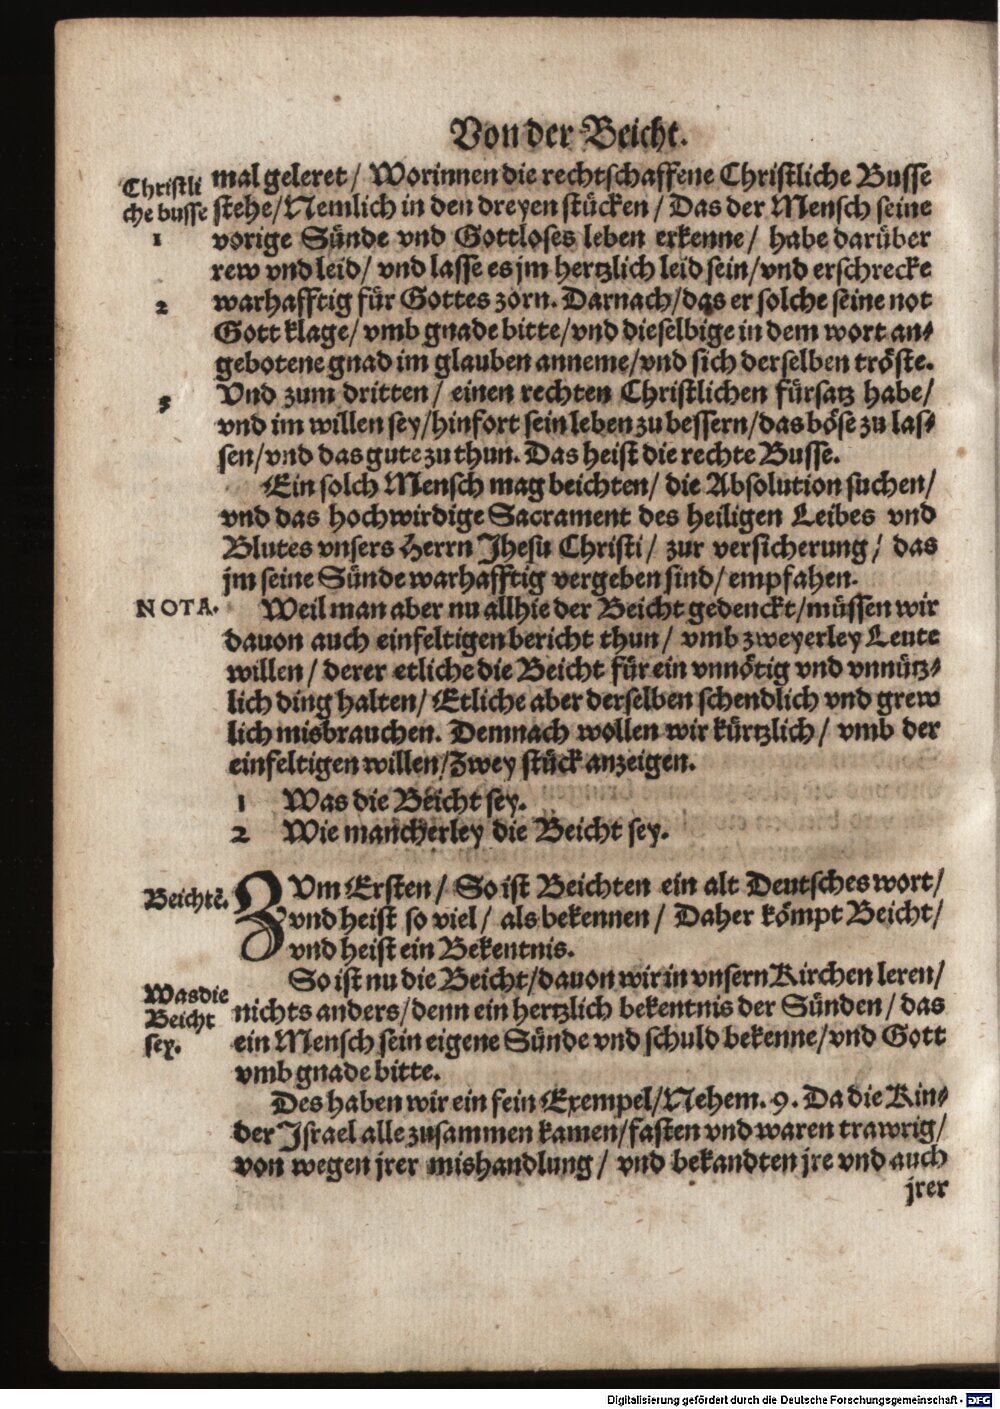 Von der Beicht.
Christli mal geleret / Worinnen die rechtschaffene Christliche Busse
che busse stehe / Nemlich in den dreyen stücken / Das der Mensch seine
1 vorige Sünde vnd Gottloses leben erkenne / habe darüber
rew vnd leid / vnd lasse es jm hertzlich leid sein / vnd erschrecke
2 warhafftig für Gottes zorn. Darnach / das er solche seine not
Gott klage / vmb gnade bitte / vnd dieselbige in dem wort an-
gebotene gnad im glauben anneme / vnd sich derselben tröste.
3 Vnd zum dritten / einen rechten Christlichen fürsatz habe /
vnd im willen sey / hinfort sein leben zu bessern / das böse zu las-
sen / vnd das gute zu thun. Das heist die rechte Busse.
Ein solch Mensch mag beichten / die Absolution suchen /
vnd das hochwirdige Sacrament des heiligen Leibes vnd
Blutes vnsers Herrn Jhesu Christi / zur versicherung / das
jm seine Sünde warhafftig vergeben sind / empfahen.
NOTA. Weil man aber nu allhie der Beicht gedenckt / müssen wir
dauon auch einfeltigen bericht thun / vmb zweyerley Leute
willen / derer etliche die Beicht für ein vnnötig vnd vnnütz-
lich ding halten / Etliche aber derselben schendlich vnd grew
lich misbrauchen. Demnach wollen wir kürtzlich / vmb der
einfeltigen willen / Zwey stück anzeigen.
1 Was die Beicht sey.
2 Wie mancherley die Beicht sey.
Beichtẽ. ZVm Ersten / So ist Beichten ein alt Deutsches wort /
vnd heist so viel / als bekennen / Daher kömpt Beicht /
vnd heist ein Bekentnis.
So ist nu die Beicht / dauon wir in vnsern Kirchen leren /
Was die nichts anders / denn ein hertzlich bekentnis der Sünden / das
Beicht ein Mensch sein eigene Sünde vnd schuld bekenne / vnd Gott
sey. vmb gnade bitte.
Des haben wir ein fein Exempel / Nehem. 9. Da die Kin-
der Israel alle zusammen kamen / fasten vnd waren trawrig /
von wegen jrer mishandlung / vnd bekandten jre vnd auch
jrer
Digitalisierung gefördert durch die Deutsche Forschungsgemeinschaft - DFG